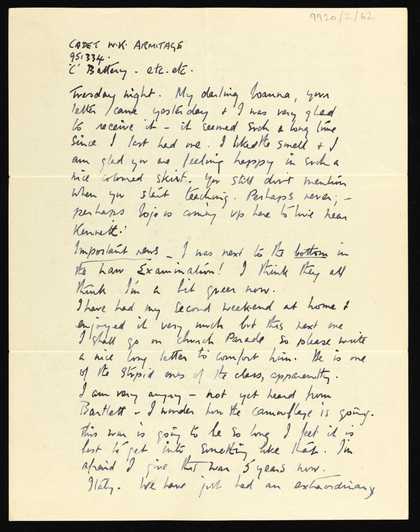 9920/2/62
CADET W.K. ARMITAGE
951334.
'C' Battery - etc. etc.
Tuesday night. My darling Joanna, your
letter came yesterday & I was very glad
to receive it - it seemed such a long time
since I last had one. I like the smell & I
am glad you are feeling happy in such a
nice coloured skirt. You still don't mention
when you start teaching. Perhaps never; -
perhaps JoJo is coming up here to live near
Kenneth!
Important news - I was next to the bottom in
the Law Examination! I think they all
think I'm a bit queer now.
I have had my second weekend at home &
enjoyed it very much but this next one
I shall go on Church Parade so please write
a nice long letter to comfort him. He is one
of the stupid ones of the class, apparently.
I am very angry - not yet heard from
Bartlett - I wonder how the camouflage is going.
This war is going to be so long I feel it is
best to get into something like that. I'm
afraid I give this war 5 years now.
Italy. We have just had an extraordinary